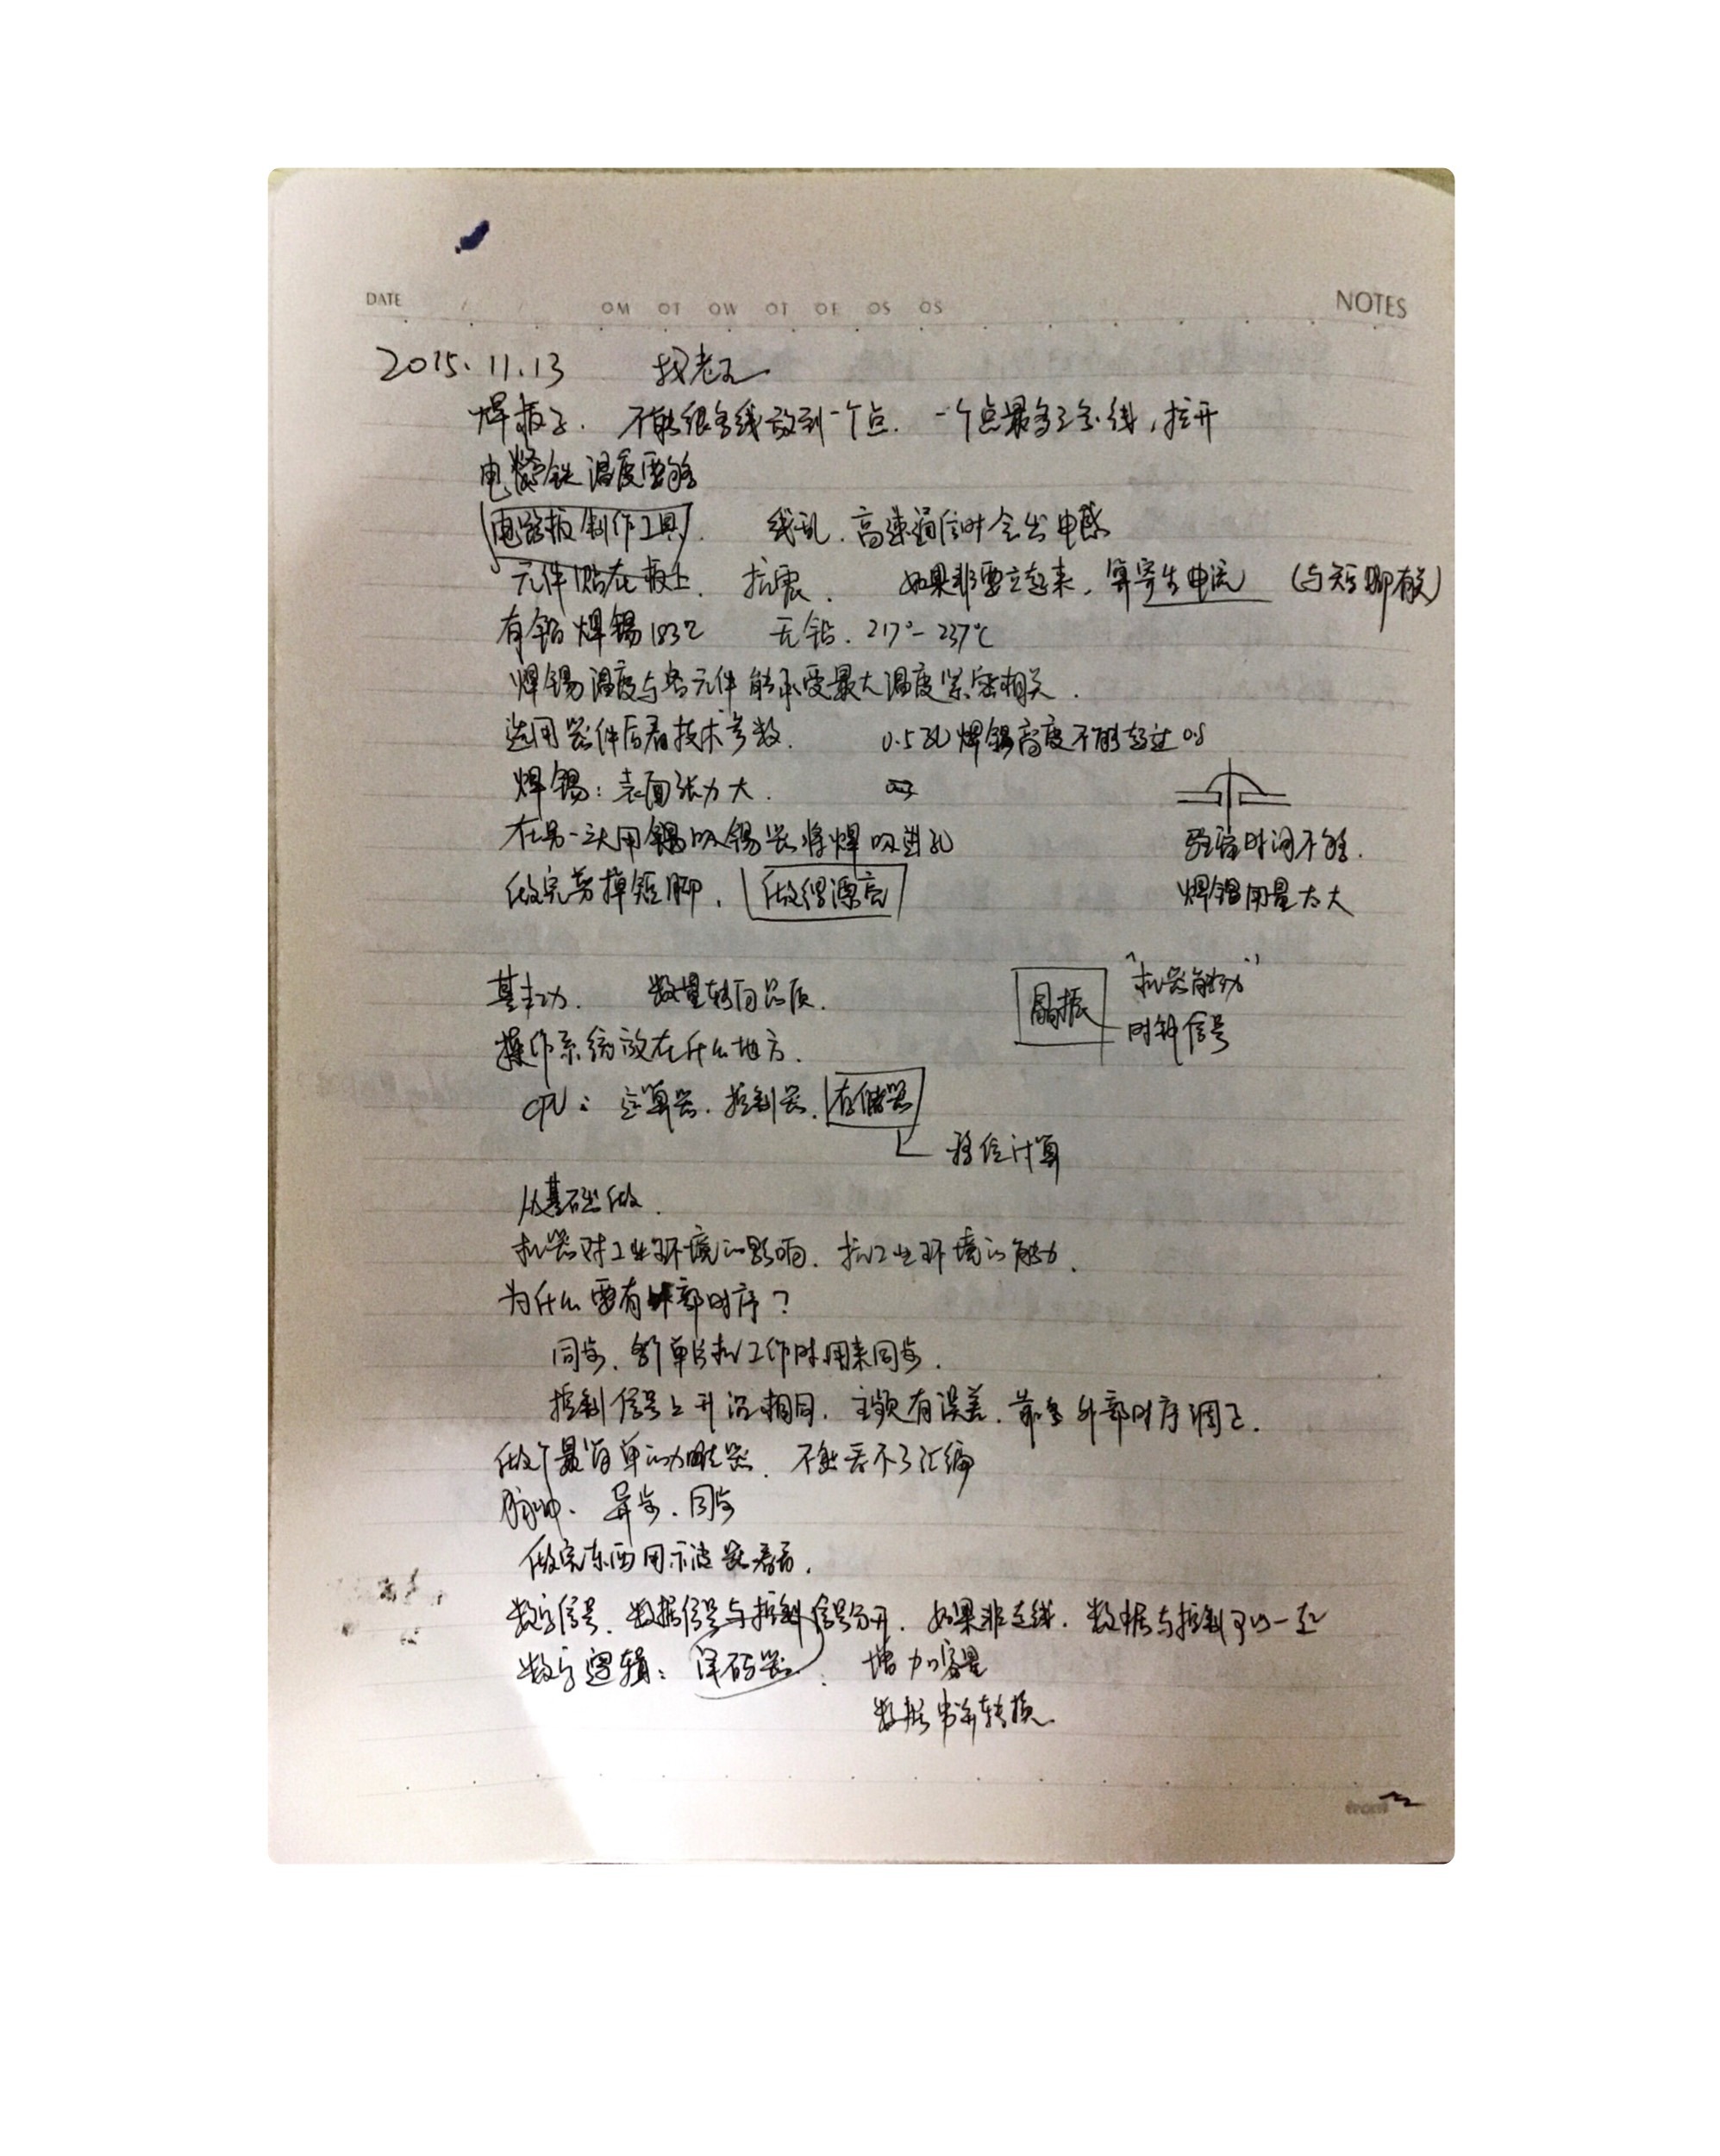 DATE / / OM OT OW OT OF OS OS NOTES
2015.11.13 找老王
焊板子. 不能很多线放到一个点. 一个点最多三条线,拉开
电烙铁温度要够
电路板制作工具. 线乱.高速通信时会出电感
元件贴在板上. 抗震. 如果非要立起来,算寄生电流 (与短脚有关)
有铅焊锡183℃ 无铅.217°-237℃
焊锡温度与各元件能承受最大温度紧密相关.
选用器件后看技术参数. 0.5孔焊锡高度不能超过0.5
焊锡:表面张力大.
在另一头用吸锡器将焊吸进孔 驻留时间不够.
做完剪掉短脚. 做得漂亮 焊锡用量太大
基本功. 数量转向品质. 晶振 "机器能动"
操作系统放在什么地方. 时钟信号
CPU: 运算器.控制器.存储器
移位计算
从基础做.
机器对工业环境的影响.抗工业环境的能力.
为什么要有外部时序?
同步.多个单片机工作时用来同步.
控制信号上升沿相同.主频有误差.靠外部时序调正.
做个最简单的功能器.不能丢不了汇编
脉冲.异步.同步
做完东西用示波器看看.
数字信号.数据信号与控制信号分开.如果非连线.数据与控制可以一起
数字逻辑:译码器. 增加容量
数据串并转换.